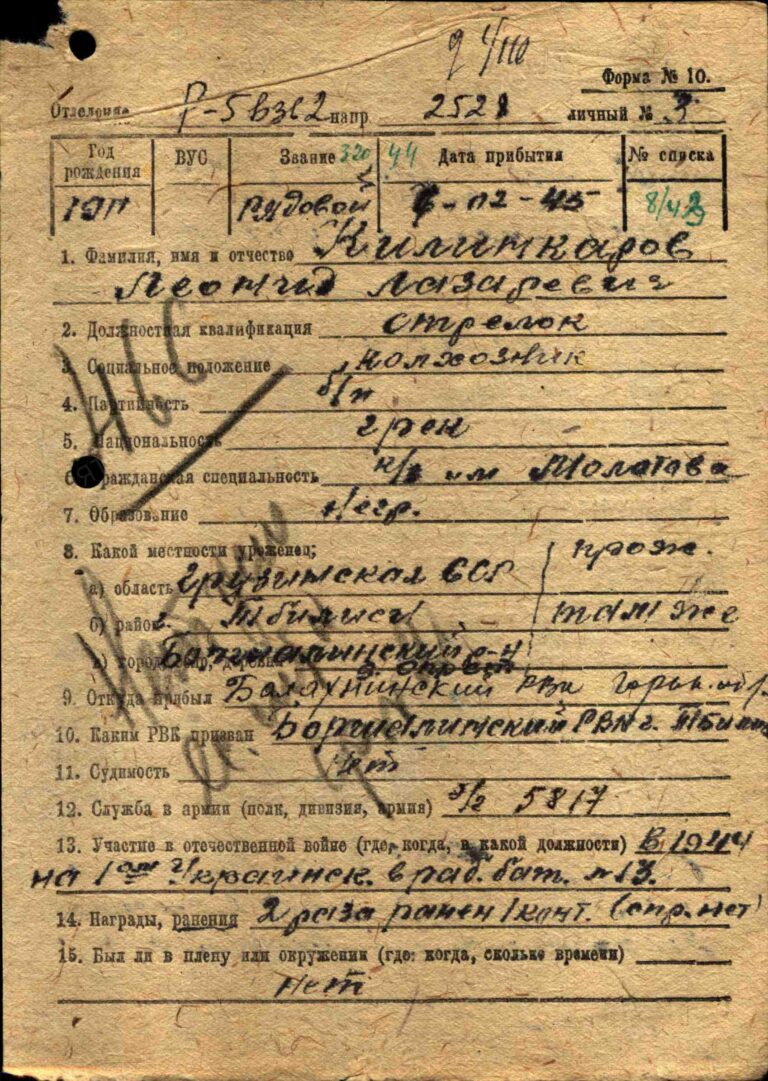 Форма № 10.
Отделение Р-5 взв 2 напр. 2521 личный № 3
Год рождения ВУС Звание 320 44 Дата прибытия № списка
1911 Рядовой 6-02-45 8/423
1. Фамилия, имя и отчество Килинкаров
Леонтид Лазаревич
2. Должностная квалификация стрелок
3. Социальное положение колхозник
4. Партийность б/п
5. Национальность грек
6. Гражданская специальность к/з им Молатова
7. Образование негр.
8. Какой местности уроженец; прож.
а) область Грузинская ССР
б) район г. Тбилиси там же
в) город, деревня
9. Откуда прибыл Балахнинский РВК Горьк. обл.
10. Каким РВК призван Борчалинский РВК г. Тбилиси
11. Судимость Нет
12. Служба в армии (полк, дивизия, армия) э/г 5817
13. Участие в отечественной войне (где, когда, в какой должности) В 1944
на 1ом Украинск. в раб. бат. №13.
14. Награды, ранения 2 раза ранен 1 конт. (спр. нет)
15. Был ли в плену или окружении (где: когда, сколько времени)
Нет